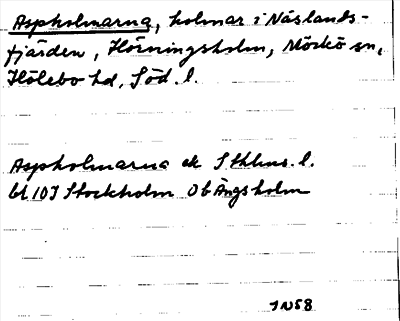 Aspholmarna, holmar i Näslands-
fjärden, Hörningsholm, Mörkö sn,
Hölebo hd, Söd. l.
Aspholmarna ek Sthlms. l.
bl 10J Stockholm Ob Ängsholm
JN58